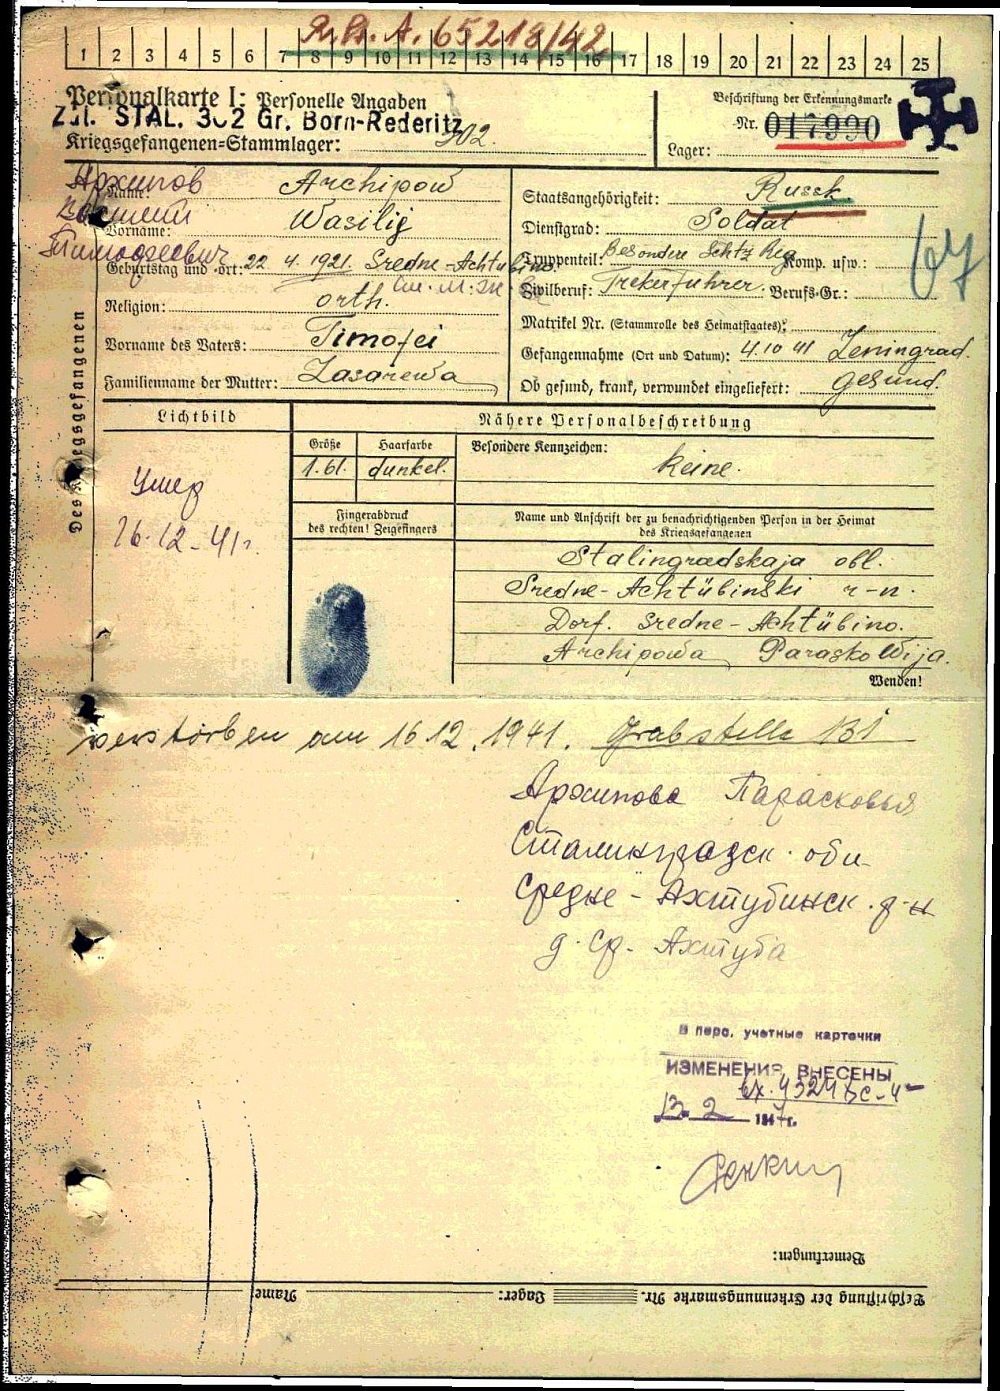 R. St. A. 65218/42
1 2 3 4 5 6 7 8 9 10 11 12 13 14 15 16 17 18 19 20 21 22 23 24 25
Personalkarte I: Personelle Angaben
Beschriftung der Erkennungsmarke
Zul. STAL. 302 Gr. Born-Rederitz
Nr. 017990
Kriegsgefangenen-Stammlager: 302.
Lager:
Des Kriegsgefangenen
Архипов
Name: Archipow
Staatsangehörigkeit: Russk
Василий
Vorname: Wasilij
Dienstgrad: Soldat
Тимофеевич
Truppenteil: Besondere Schtz Reg Komp. usw.:
67
Geburtstag und -ort: 22 4. 1921. Sredne-Achtubino.
Zivilberuf: Trekerfuhrer. Berufs-Gr.:
Religion: orth.
Matrikel Nr. (Stammrolle des Heimatstaates):
Vorname des Vaters: Timofei
Gefangennahme (Ort und Datum): 4.10 41 Leningrad.
Familienname der Mutter: Lasarewa
Ob gesund, krank, verwundet eingeliefert: gesund.
Lichtbild
Nähere Personalbeschreibung
Größe Haarfarbe Besondere Kennzeichen:
1.61. dunkel. keine.
Умер
16.12-41г.
Fingerabdruck
des rechten! Zeigefingers
Name und Anschrift der zu benachrichtigenden Person in der Heimat
des Kriegsgefangenen
Stalingradskaja obl.
Sredne-Achtübinski r-n.
Dorf. Sredne-Achtübino.
Archipowa Paraskowija.
Wenden!
verstorben am 16 12. 1941. Grabstelle 131
Архипова Парасковья
Сталинградск. обл
Средне-Ахтубинск. р-н
д. Ср. Ахтуба
В перс. учетные карточки
ИЗМЕНЕНИЯ ВНЕСЕНЫ
13. 2 1947г.
Bemerkungen:
Beschriftung der Erkennungsmarke Nr. Lager: Name